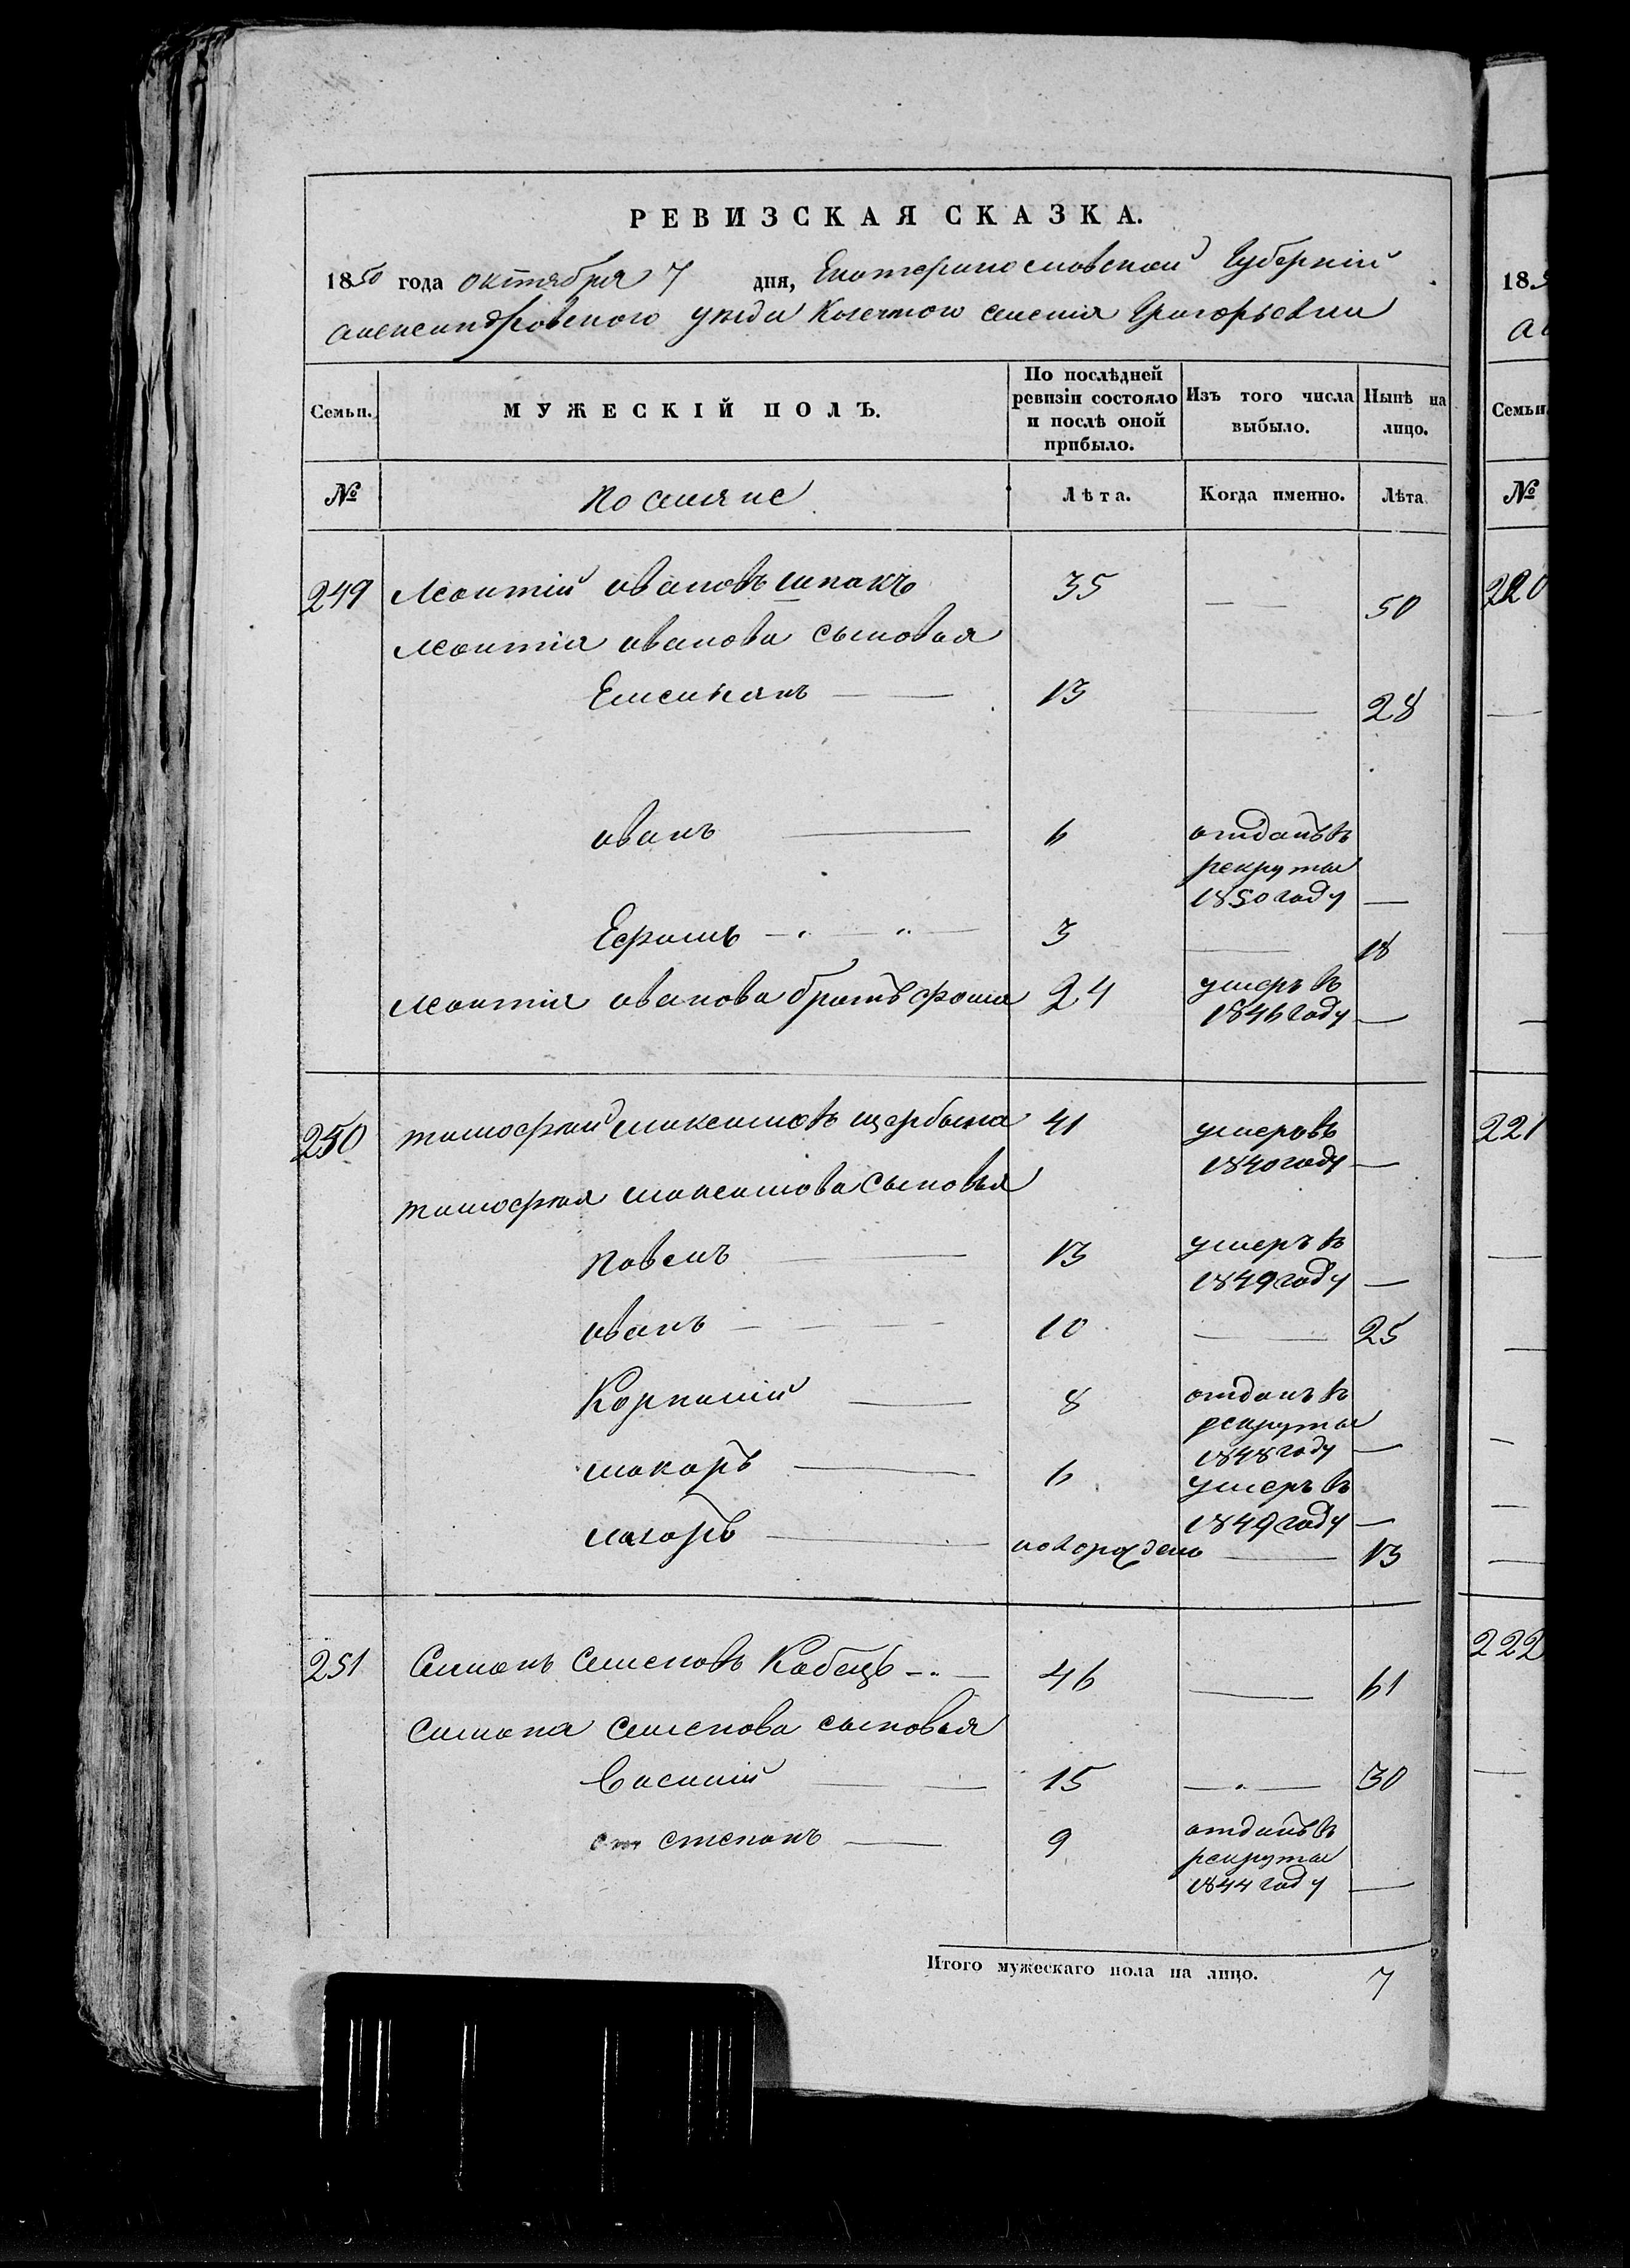 РЕВИЗСКАЯ СКАЗКА.
1850 года октября 7 дня, Екатеринославской Губерніи
александровского уезда Козенного селенія Григорьевки
Семьи. МУЖЕСКІЙ ПОЛЪ. По послѣдней ревизіи состояло и послѣ оной прибыло. Изъ того числа выбыло. Нынѣ на лицо.
№ поселяне Лѣта. Когда именно. Лѣта
249 Леонтій ивановъ шпакъ 35 — 50
леонтія иванова сыновья
Емельянъ — 13 — 28
иванъ — 6 отданъ въ
рекруты
1850 году —
Ефримъ — 3 — 18
леонтія иванова братъ фома 24 умеръ в
1846 году —
250 тимофей максимовъ щербина 41 умеръ въ
1840 году —
тимофея максимова сыновья
павелъ — 13 умеръ в
1849 году —
иванъ — 10 — 25
Корнилій — 8 отданъ в
рекруты
1848 году —
макаръ — 6 умеръ в
1849 году —
назаръ — новорожден — 13
251 Симонъ Семеновъ Кобецъ — 46 — 61
симона семенова сыновья
Василій — 15 — 30
степанъ — 9 отданъ в
рекруты
1844 году —
Итого мужескаго пола на лицо. 7
185
а
Семьи
№
220
221
222